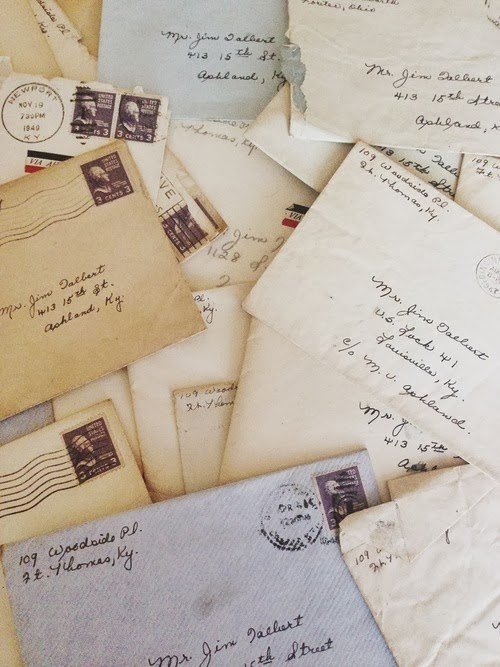 Mr. Jim Talbert
413 15th St.
Ashland, Ky
Foster, Ohio
Mr. Jim Talbert
413 15th Street
Ashland, K
NEWPORT
NOV 19
7 30 PM
1949
KY.
UNITED STATES POSTAGE
3 CENTS 3
VIA AIR
Thomas, Ky.
109 Woodside Pl.
Ft. Thomas, Ky.
15th St.
109 W
Jim
1128
Mr. Jim Talbert
413 15th St.
Ashland, Ky.
Mr. Jim Talbert
U.S. Lock 41
Louisville, Ky.
c/o M. V. Ashland.
Pl.
Ky.
109 Woods
Ft. Thom
Mr. J
413 15th
As
UNITED STATES POSTAGE
3
109 Woodside Pl.
Ft. Thomas, Ky.
Mr. Jim Talbert
15th Street
109
Ft. Th